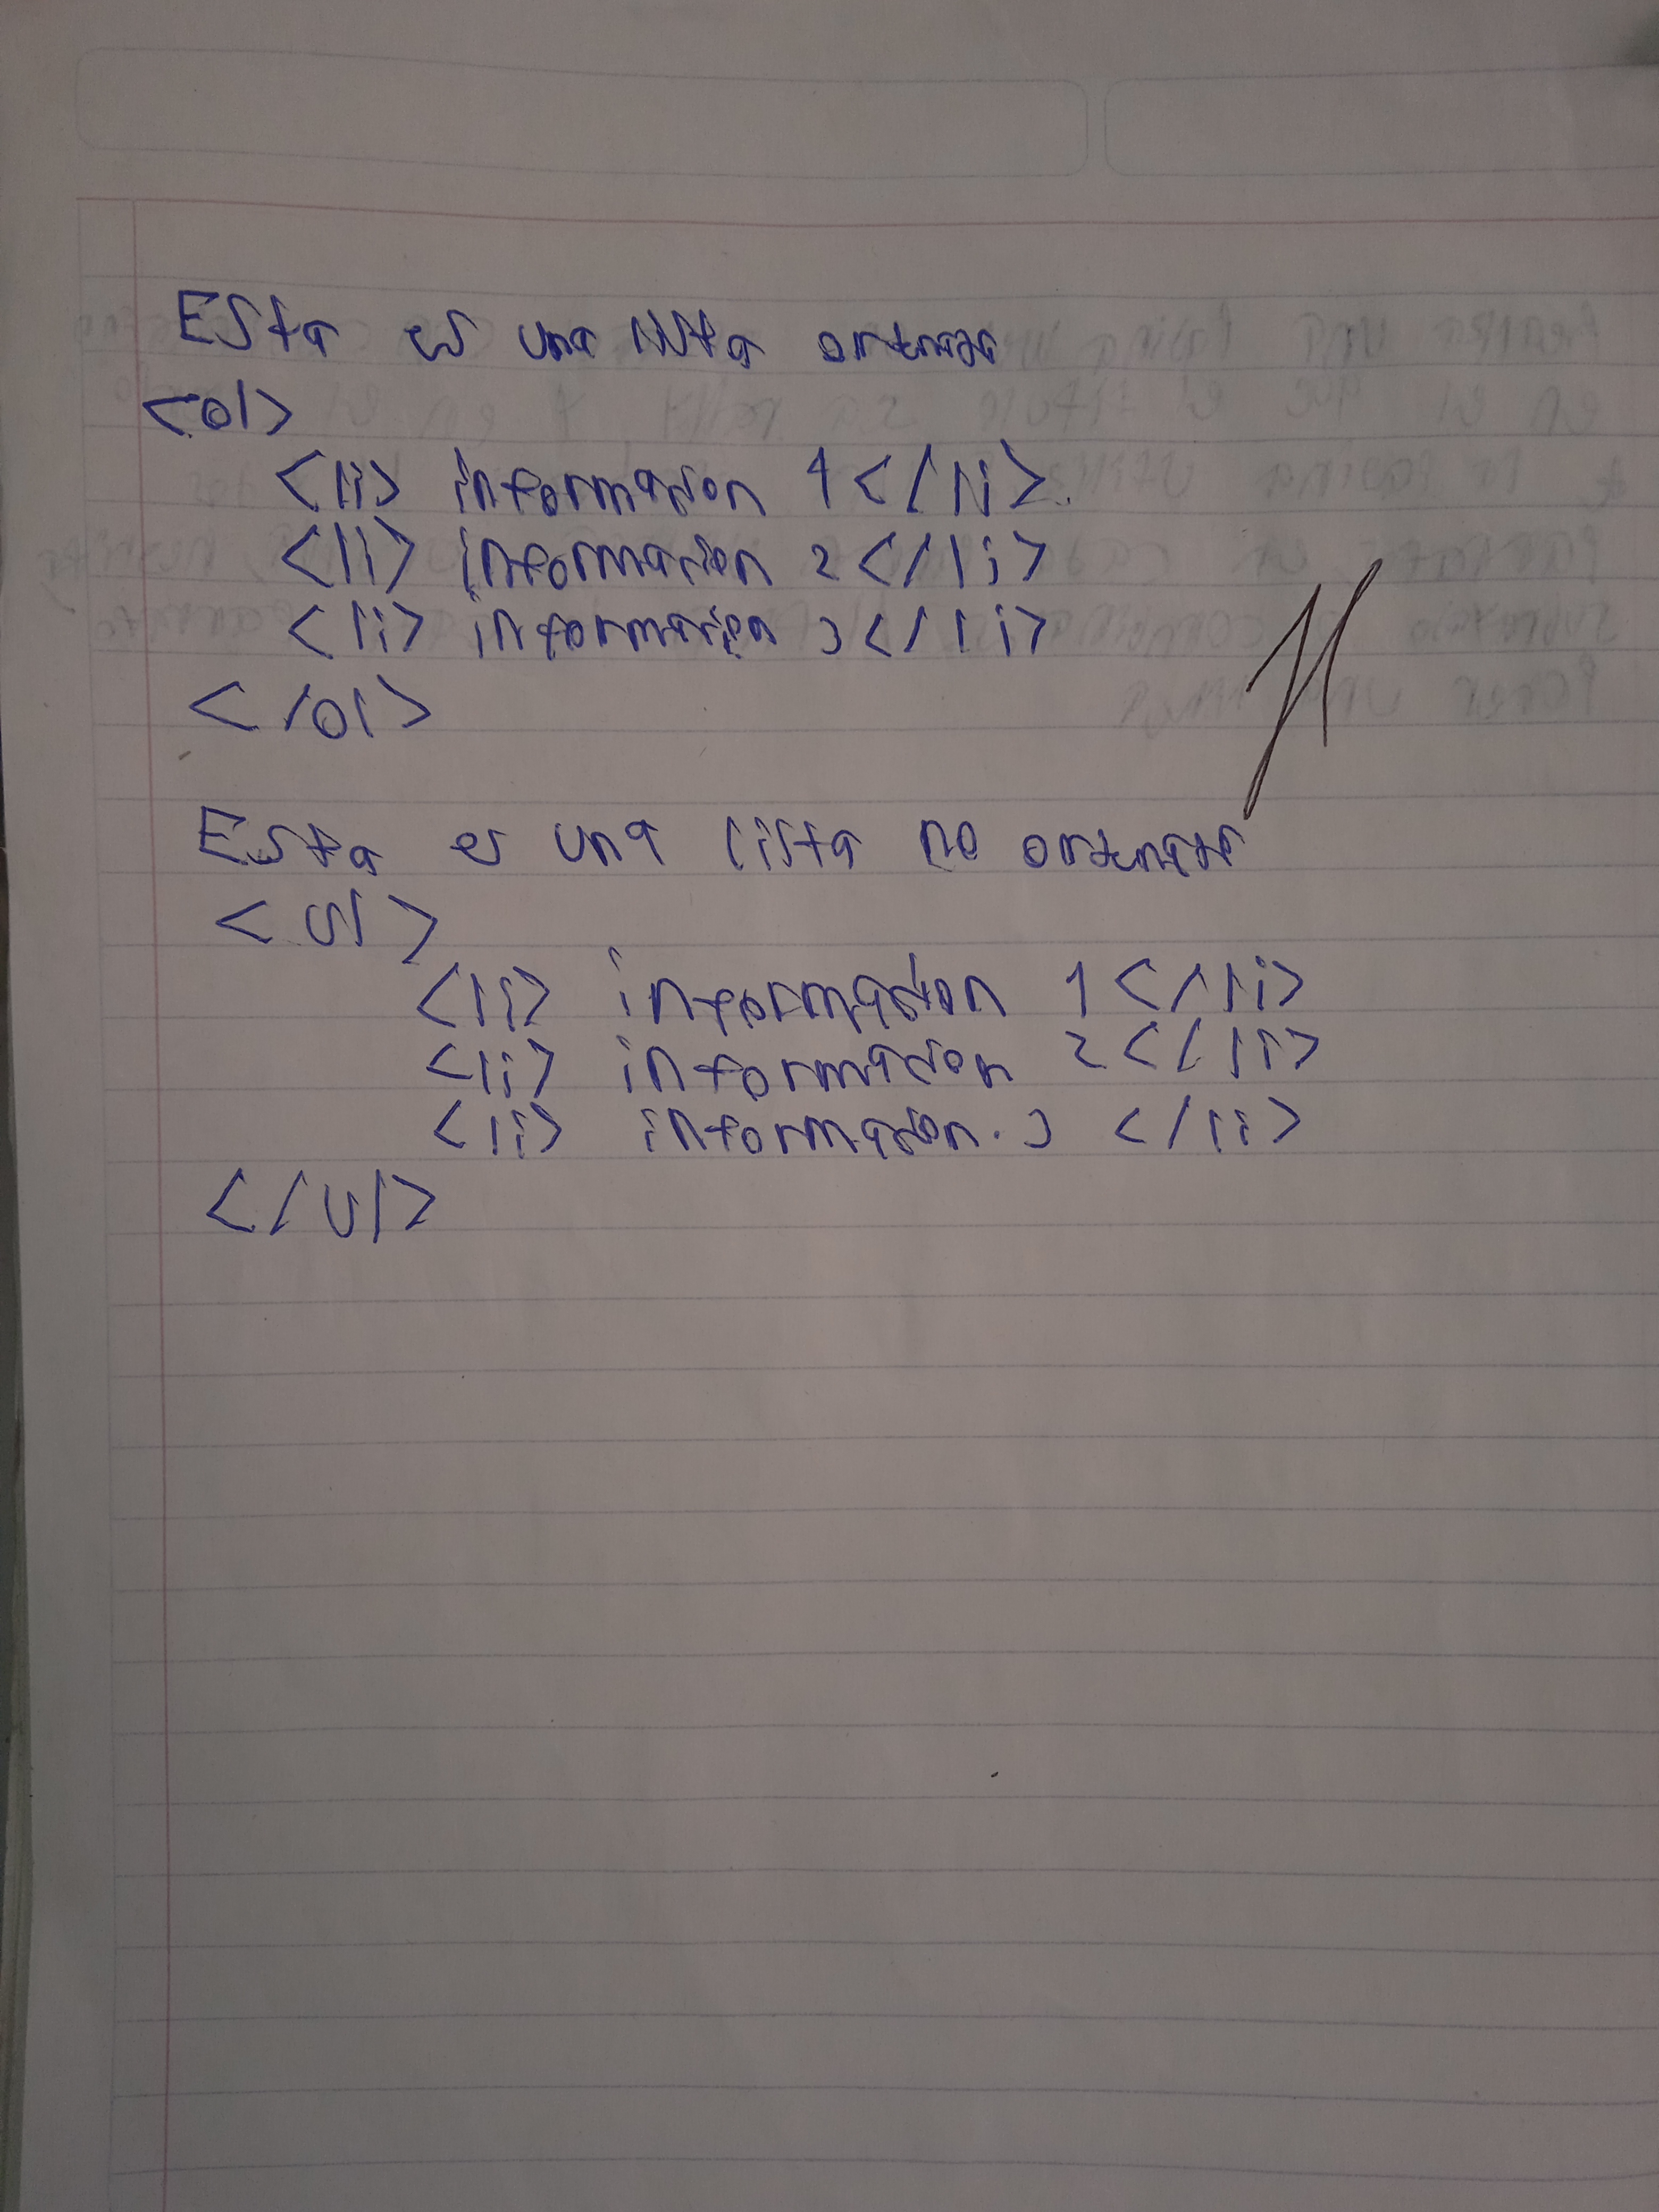 Esta es una lista ordenada
<ol>
<li> informacion 1</li>
<li> informacion 2</li>
<li> informacion 3</li>
</ol>
Esta es una lista no ordenada
<ul>
<li> informacion 1</li>
<li> informacion 2</li>
<li> informacion. 3 </li>
</ul>